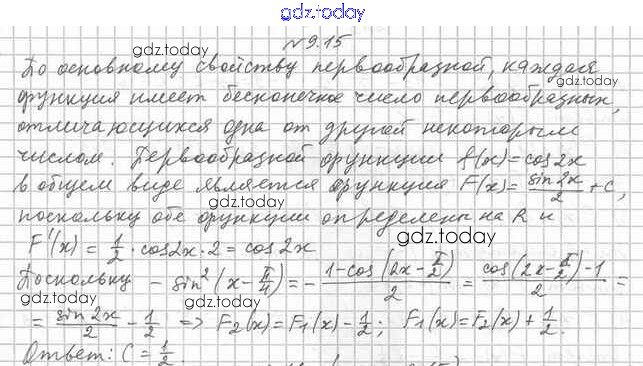 gdz.today
№9.15
gdz.today
По основному свойству первообразной, каждая
gdz.today
функция имеет бесконечное число первообразных,
отличающихся одна от другой некоторым
gdz.today
числом. Первообразной функции f(x)=cos2x
в общем виде является функция F(x)=sin2x/2+C,
поскольку обе функции определены на R и
gdz.today
F'(x)=1/2·cos2x·2=cos2x
Поскольку -sin²(x-π/4)=-(1-cos(2x-π/2))/2=(cos(2x-π/2)-1)/2=
gdz.today
gdz.today
=sin2x/2-1/2 => F₂(x)=F₁(x)-1/2; F₁(x)=F₂(x)+1/2.
gdz.today
Ответ: C=1/2.